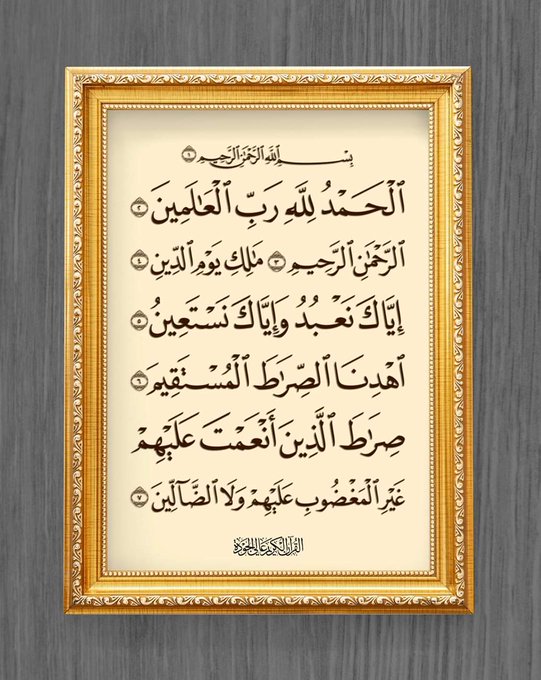 بِسْمِ ٱللَّهِ ٱلرَّحْمَٰنِ ٱلرَّحِيمِ ١
ٱلْحَمْدُ لِلَّهِ رَبِّ ٱلْعَٰلَمِينَ ٢
ٱلرَّحْمَٰنِ ٱلرَّحِيمِ ٣ مَٰلِكِ يَوْمِ ٱلدِّينِ ٤
إِيَّاكَ نَعْبُدُ وَإِيَّاكَ نَسْتَعِينُ ٥
ٱهْدِنَا ٱلصِّرَٰطَ ٱلْمُسْتَقِيمَ ٦
صِرَٰطَ ٱلَّذِينَ أَنْعَمْتَ عَلَيْهِمْ
غَيْرِ ٱلْمَغْضُوبِ عَلَيْهِمْ وَلَا ٱلضَّآلِّينَ ٧
القرآن الكريم عالي الجودة